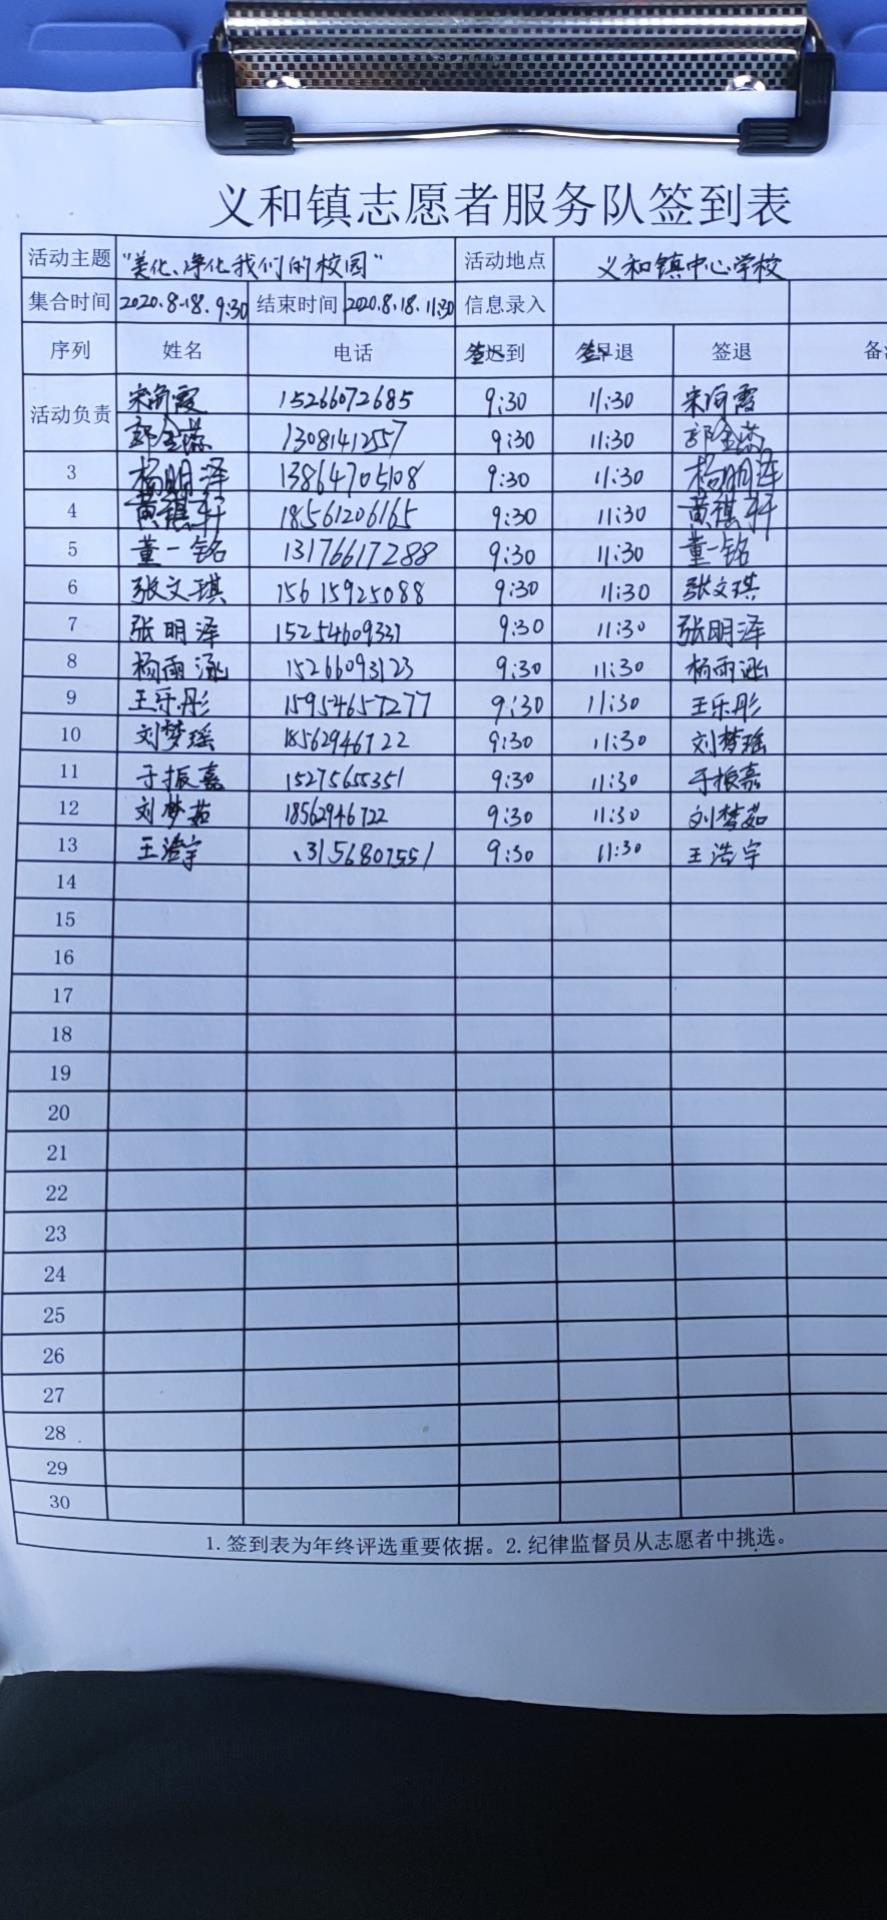 义和镇志愿者服务队签到表
活动主题 "美化、净化我们的校园" 活动地点 义和镇中心学校
集合时间 2020.8.18.9:30 结束时间 2020.8.18.11:30 信息录入
序列 姓名 电话 签到 早退 签退 备
活动负责 宋向霞 15266072685 9:30 11:30 宋向霞
郭金蕊 13081412557 9:30 11:30 郭金蕊
3 杨明泽 13864705108 9:30 11:30 杨明泽
4 黄祺轩 18561206165 9:30 11:30 黄祺轩
5 董一铭 13176617288 9:30 11:30 董一铭
6 张文琪 15615925088 9:30 11:30 张文琪
7 张明泽 15254609331 9:30 11:30 张明泽
8 杨雨涵 15266093123 9:30 11:30 杨雨涵
9 王乐彤 15954657277 9:30 11:30 王乐彤
10 刘梦瑶 18562946722 9:30 11:30 刘梦瑶
11 于振嘉 15275655351 9:30 11:30 于振嘉
12 刘梦茹 18562946722 9:30 11:30 刘梦茹
13 王浩宇 13156807551 9:30 11:30 王浩宇
14
15
16
17
18
19
20
21
22
23
24
25
26
27
28
29
30
1.签到表为年终评选重要依据。2.纪律监督员从志愿者中挑选。